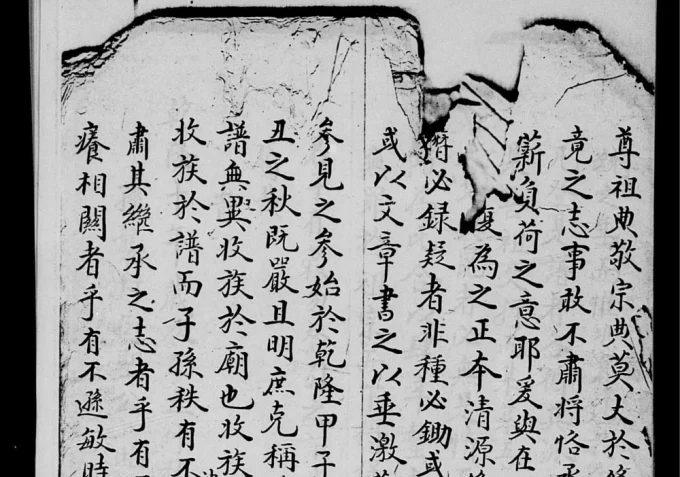 尊祖典敬宗典莫大於修
竟之志事敢不肅將恪承
薪負荷之意耶爰與在
復為之正本清源
必錄疑者非種必鋤或
或以文章書之以垂激
參見之參始於乾隆甲子
丑之秋既嚴且明庶克稱
譜無異收族於廟也收族
收族於譜而子孫秩有不
肅其繼承之志者乎有
癢相關者乎有不遜敏時